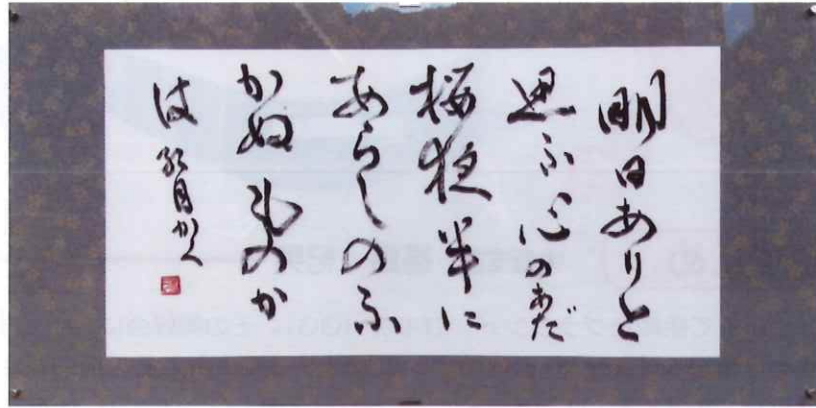 明日ありと
思ふ心のあだ
桜夜半に
あらしのふ
かぬものか
は
かく